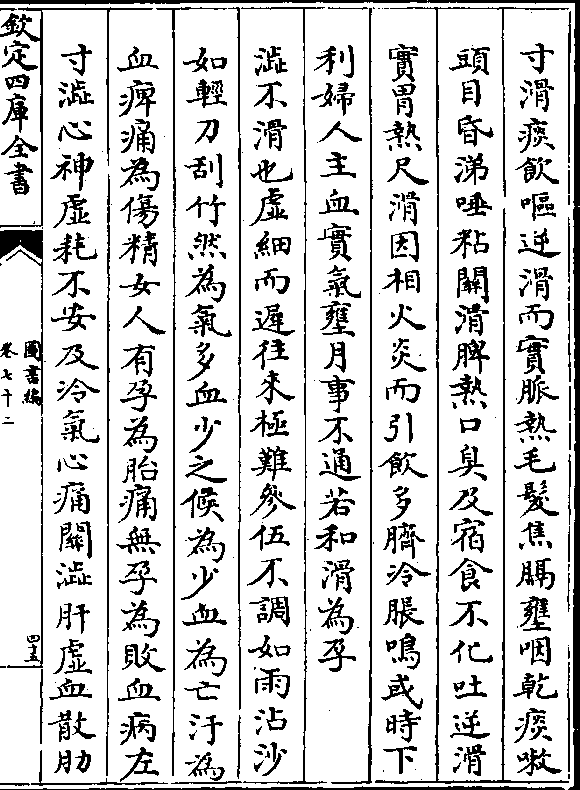 寸滑痰飲嘔逆滑而實脈熱毛髮焦膈壅咽乾痰嗽
頭目昏涕唾粘關滑脾熱口臭及宿食不化吐逆滑
實胃熱尺滑因相火炎而引飲多臍冷脹鳴或時下
利婦人主血實氣壅月事不通若和滑為孕
澁不滑也虛細而遲往来極難參伍不調如雨沾沙
如輕刀刮竹然為氣多血少之候為少血為亡汗為
血痺痛為傷精女人有孕為胎痛無孕為敗血病左
寸澁心神虛耗不安及冷氣心痛關澁肝虛血散肋
欽定四庫全書
圖書編
卷七十二
四五